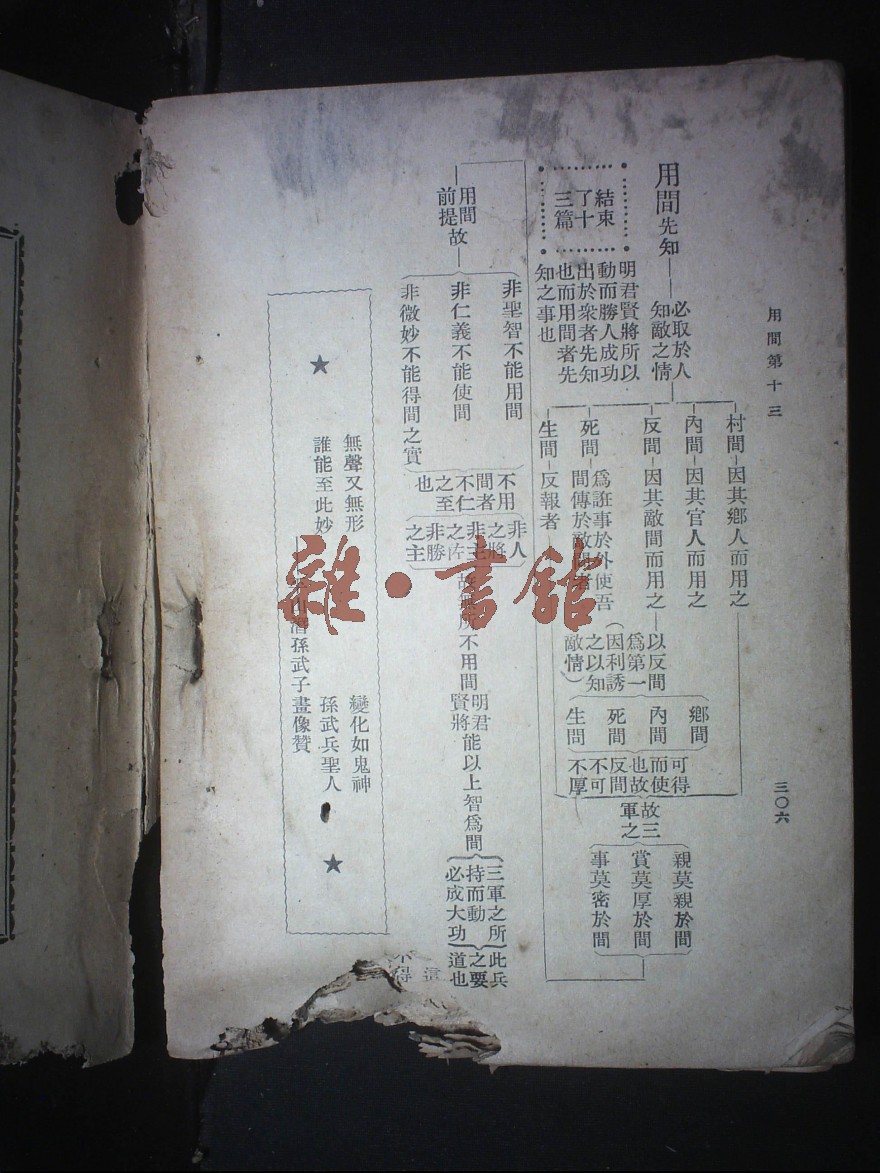 用間第十三
三〇六
用間先知
必取於人
知敵之情
結束
了十
三篇
明君賢將所以
動而勝人成功
出於衆者先知
也而用間者先
知之事也
村間—因其鄉人而用之
內間—因其官人而用之
反間—因其敵間而用之—以反間
爲第一
(因利誘
之以知
敵情)
死間—爲誑事於外使吾
間傳於敵間者
生間—反報者
鄉間
內間
死間
生問
可得
而使
也故
反間
不可
不厚
故三
軍之
親莫親於間
賞莫厚於間
事莫密於間
用間故
前提
非聖智不能用間
非仁義不能使間
非微妙不能得間之實
不用
間者
不仁
之至
也
非人
之將
非主
之佐
非勝
之主
所不用間
明君
賢將
能以上智爲間
三軍之所
持而動
必成大功
此兵
之要
道也
這
不得
★
無聲又無形
誰能至此妙
變化如鬼神
孫武兵聖人
孫武子畫像贊
★
雜·書館